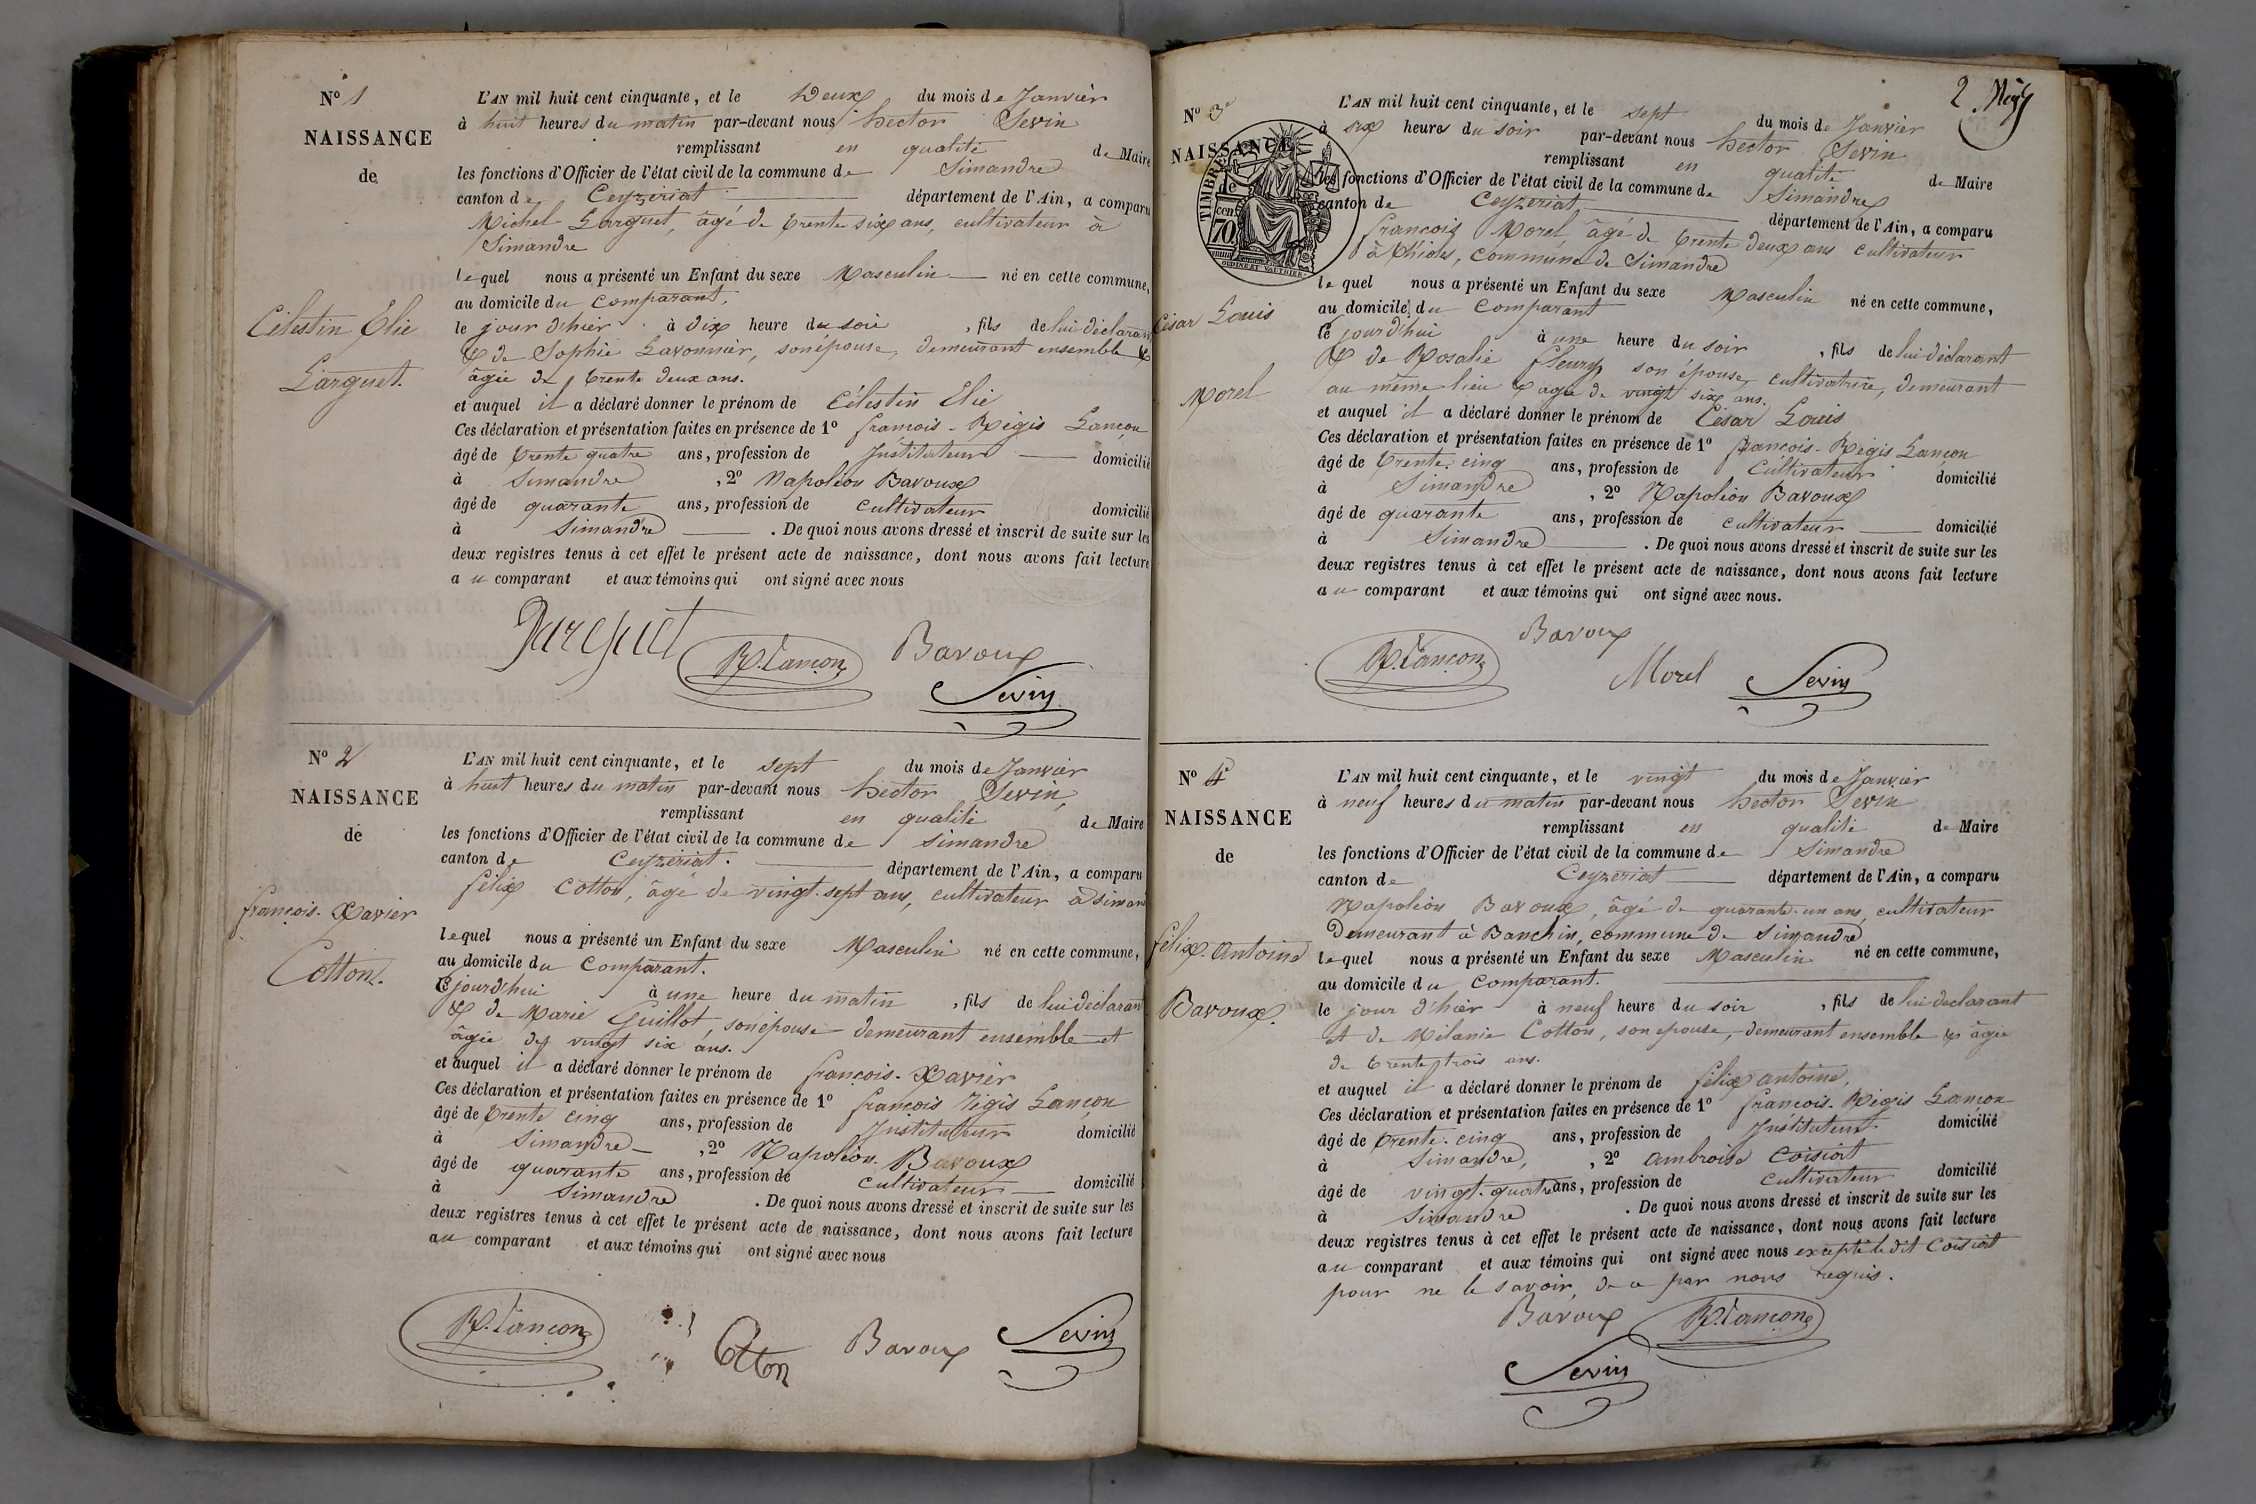 Nº 1
NAISSANCE
de
Célestin Elie
Larguet.
L'AN mil huit cent cinquante, et le Deux du mois de Janvier
à huit heures du matin par-devant nous hector Sevin
remplissant en qualité de Maire
les fonctions d'Officier de l'état civil de la commune de Simandre
canton de Ceyzeriat département de l'Ain, a comparu
Michel Larguet, âgé de trente six ans, cultivateur à
Simandre
lequel nous a présenté un Enfant du sexe Masculin né en cette commune,
au domicile du comparant,
le jour d'hier à dix heure du soir, fils de lui déclarant
& de Sophie Lavonnier, son épouse, demeurant ensemble &
âgée de trente deux ans.
et auquel il a déclaré donner le prénom de Célestin Elie
Ces déclaration et présentation faites en présence de 1º francois-Régis Lançon
âgé de trente quatre ans, profession de Instituteur domicilié
à Simandre, 2º Napoléon Bavoux
âgé de quarante ans, profession de cultivateur domicilié
à Simandre. De quoi nous avons dressé et inscrit de suite sur les
deux registres tenus à cet effet le présent acte de naissance, dont nous avons fait lecture
au comparant et aux témoins qui ont signé avec nous
Larguet R. Lançon Bavoux
Sevin
Nº 2
NAISSANCE
de
françois-Xavier
Cotton.
L'AN mil huit cent cinquante, et le sept du mois de Janvier
à huit heures du matin par-devant nous hector Sevin,
remplissant en qualité de Maire
les fonctions d'Officier de l'état civil de la commune de Simandre
canton de Ceyzériat. département de l'Ain, a comparu
félix Cotton, âgé de vingt-sept ans, cultivateur à Siman
lequel nous a présenté un Enfant du sexe Masculin né en cette commune,
au domicile du comparant.
Cejourd'hui à une heure du matin, fils de lui déclarant
& de Marie Guillot, son épouse demeurant ensemble et
âgée de vingt six ans.
et auquel il a déclaré donner le prénom de françois-Xavier
Ces déclaration et présentation faites en présence de 1º françois régis Lançon
âgé de trente cinq ans, profession de Instituteur domicilié
à Simandre, 2º Napoléon Bavoux
âgé de quarante ans, profession de cultivateur domicilié
à Simandre. De quoi nous avons dressé et inscrit de suite sur les
deux registres tenus à cet effet le présent acte de naissance, dont nous avons fait lecture
au comparant et aux témoins qui ont signé avec nous
R. Lançon Cotton Bavoux Sevin
2
Nº 3
NAISSANCE
de
TIMBRE
cen
70
OUDINÉ ET VAUTHIER
César Louis
Morel
L'AN mil huit cent cinquante, et le sept du mois de Janvier
à six heures du soir par-devant nous hector Sevin
remplissant en qualité de Maire
les fonctions d'Officier de l'état civil de la commune de Simandre
canton de Ceyzeriat département de l'Ain, a comparu
françois Morel âgé de trente deux ans cultivateur
à Thioles, commune de Simandre
lequel nous a présenté un Enfant du sexe Masculin né en cette commune,
au domicile du comparant
Cejourd'hui à une heure du soir, fils de lui déclarant
& de Rosalie fleury son épouse, cultivatrice, demeurant
au même lieu & âgée de vingt six ans.
et auquel il a déclaré donner le prénom de César Louis
Ces déclaration et présentation faites en présence de 1º françois-Régis Lançon
âgé de trente-cinq ans, profession de Cultivateur domicilié
à Simandre, 2º Napoléon Bavoux
âgé de quarante ans, profession de cultivateur domicilié
à Simandre. De quoi nous avons dressé et inscrit de suite sur les
deux registres tenus à cet effet le présent acte de naissance, dont nous avons fait lecture
au comparant et aux témoins qui ont signé avec nous.
R. Lançon Bavoux
Morel Sevin
Nº 4
NAISSANCE
de
félix-antoine
Bavoux.
L'AN mil huit cent cinquante, et le vingt du mois de Janvier
à neuf heures du matin par-devant nous hector Sevin
remplissant en qualité de Maire
les fonctions d'Officier de l'état civil de la commune de Simandre
canton de Ceyzeriat département de l'Ain, a comparu
Napoléon Bavoux, âgé de quarante-un ans, cultivateur
Demeurant à Banchin, commune de Simandre
lequel nous a présenté un Enfant du sexe Masculin né en cette commune,
au domicile du comparant.
le jour d'hier à neuf heure du soir, fils de lui declarant
et de Mélanie Cotton, son epouse, demeurant ensemble & âgée
de trente trois ans.
et auquel il a déclaré donner le prénom de félix antoine,
Ces déclaration et présentation faites en présence de 1º françois-Régis Lançon
âgé de trente-cinq ans, profession de Instituteur domicilié
à Simandre, 2º ambroise Coisiat
âgé de vingt-quatre ans, profession de cultivateur domicilié
à Simandre. De quoi nous avons dressé et inscrit de suite sur les
deux registres tenus à cet effet le présent acte de naissance, dont nous avons fait lecture
au comparant et aux témoins qui ont signé avec nous excepté le dit Coisiat
pour ne le savoir, de ce par nous requis.
Bavoux R. Lançon
Sevin